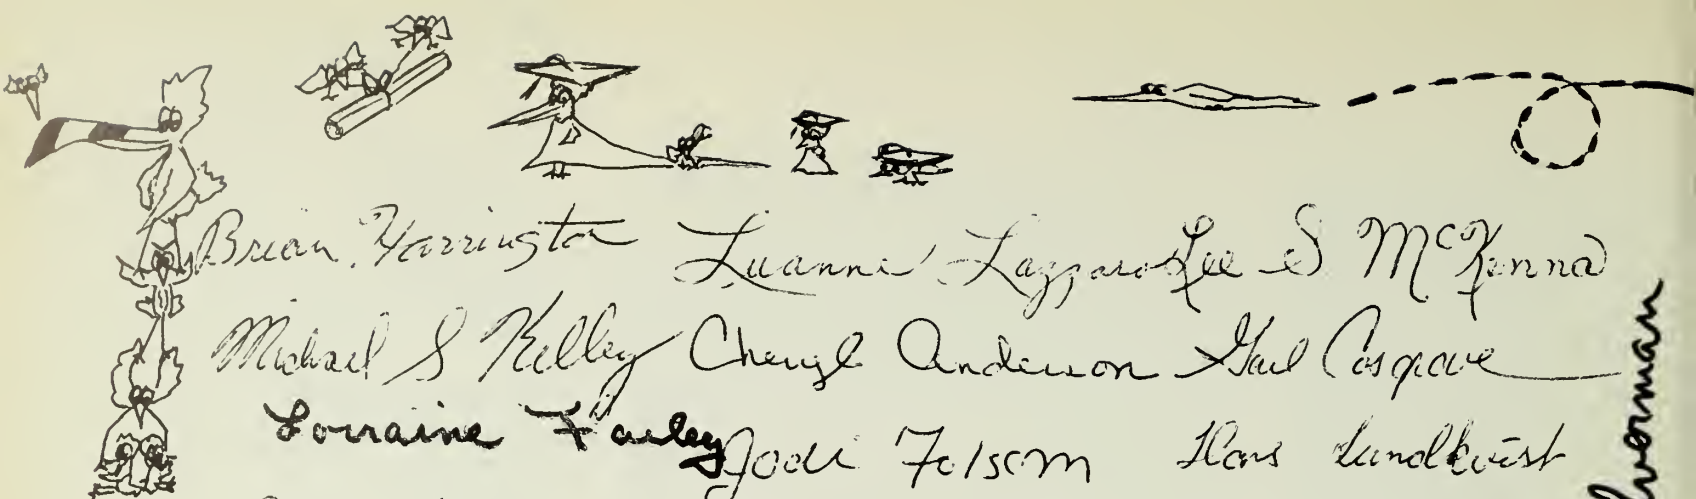 Brian Harrington Luanne Lazzaro Lee S McKenna
Michael S Kelley Cheryl Anderson Gail Cosgrove
Lorraine Farley Jodi Folsom Hans Lundkvist